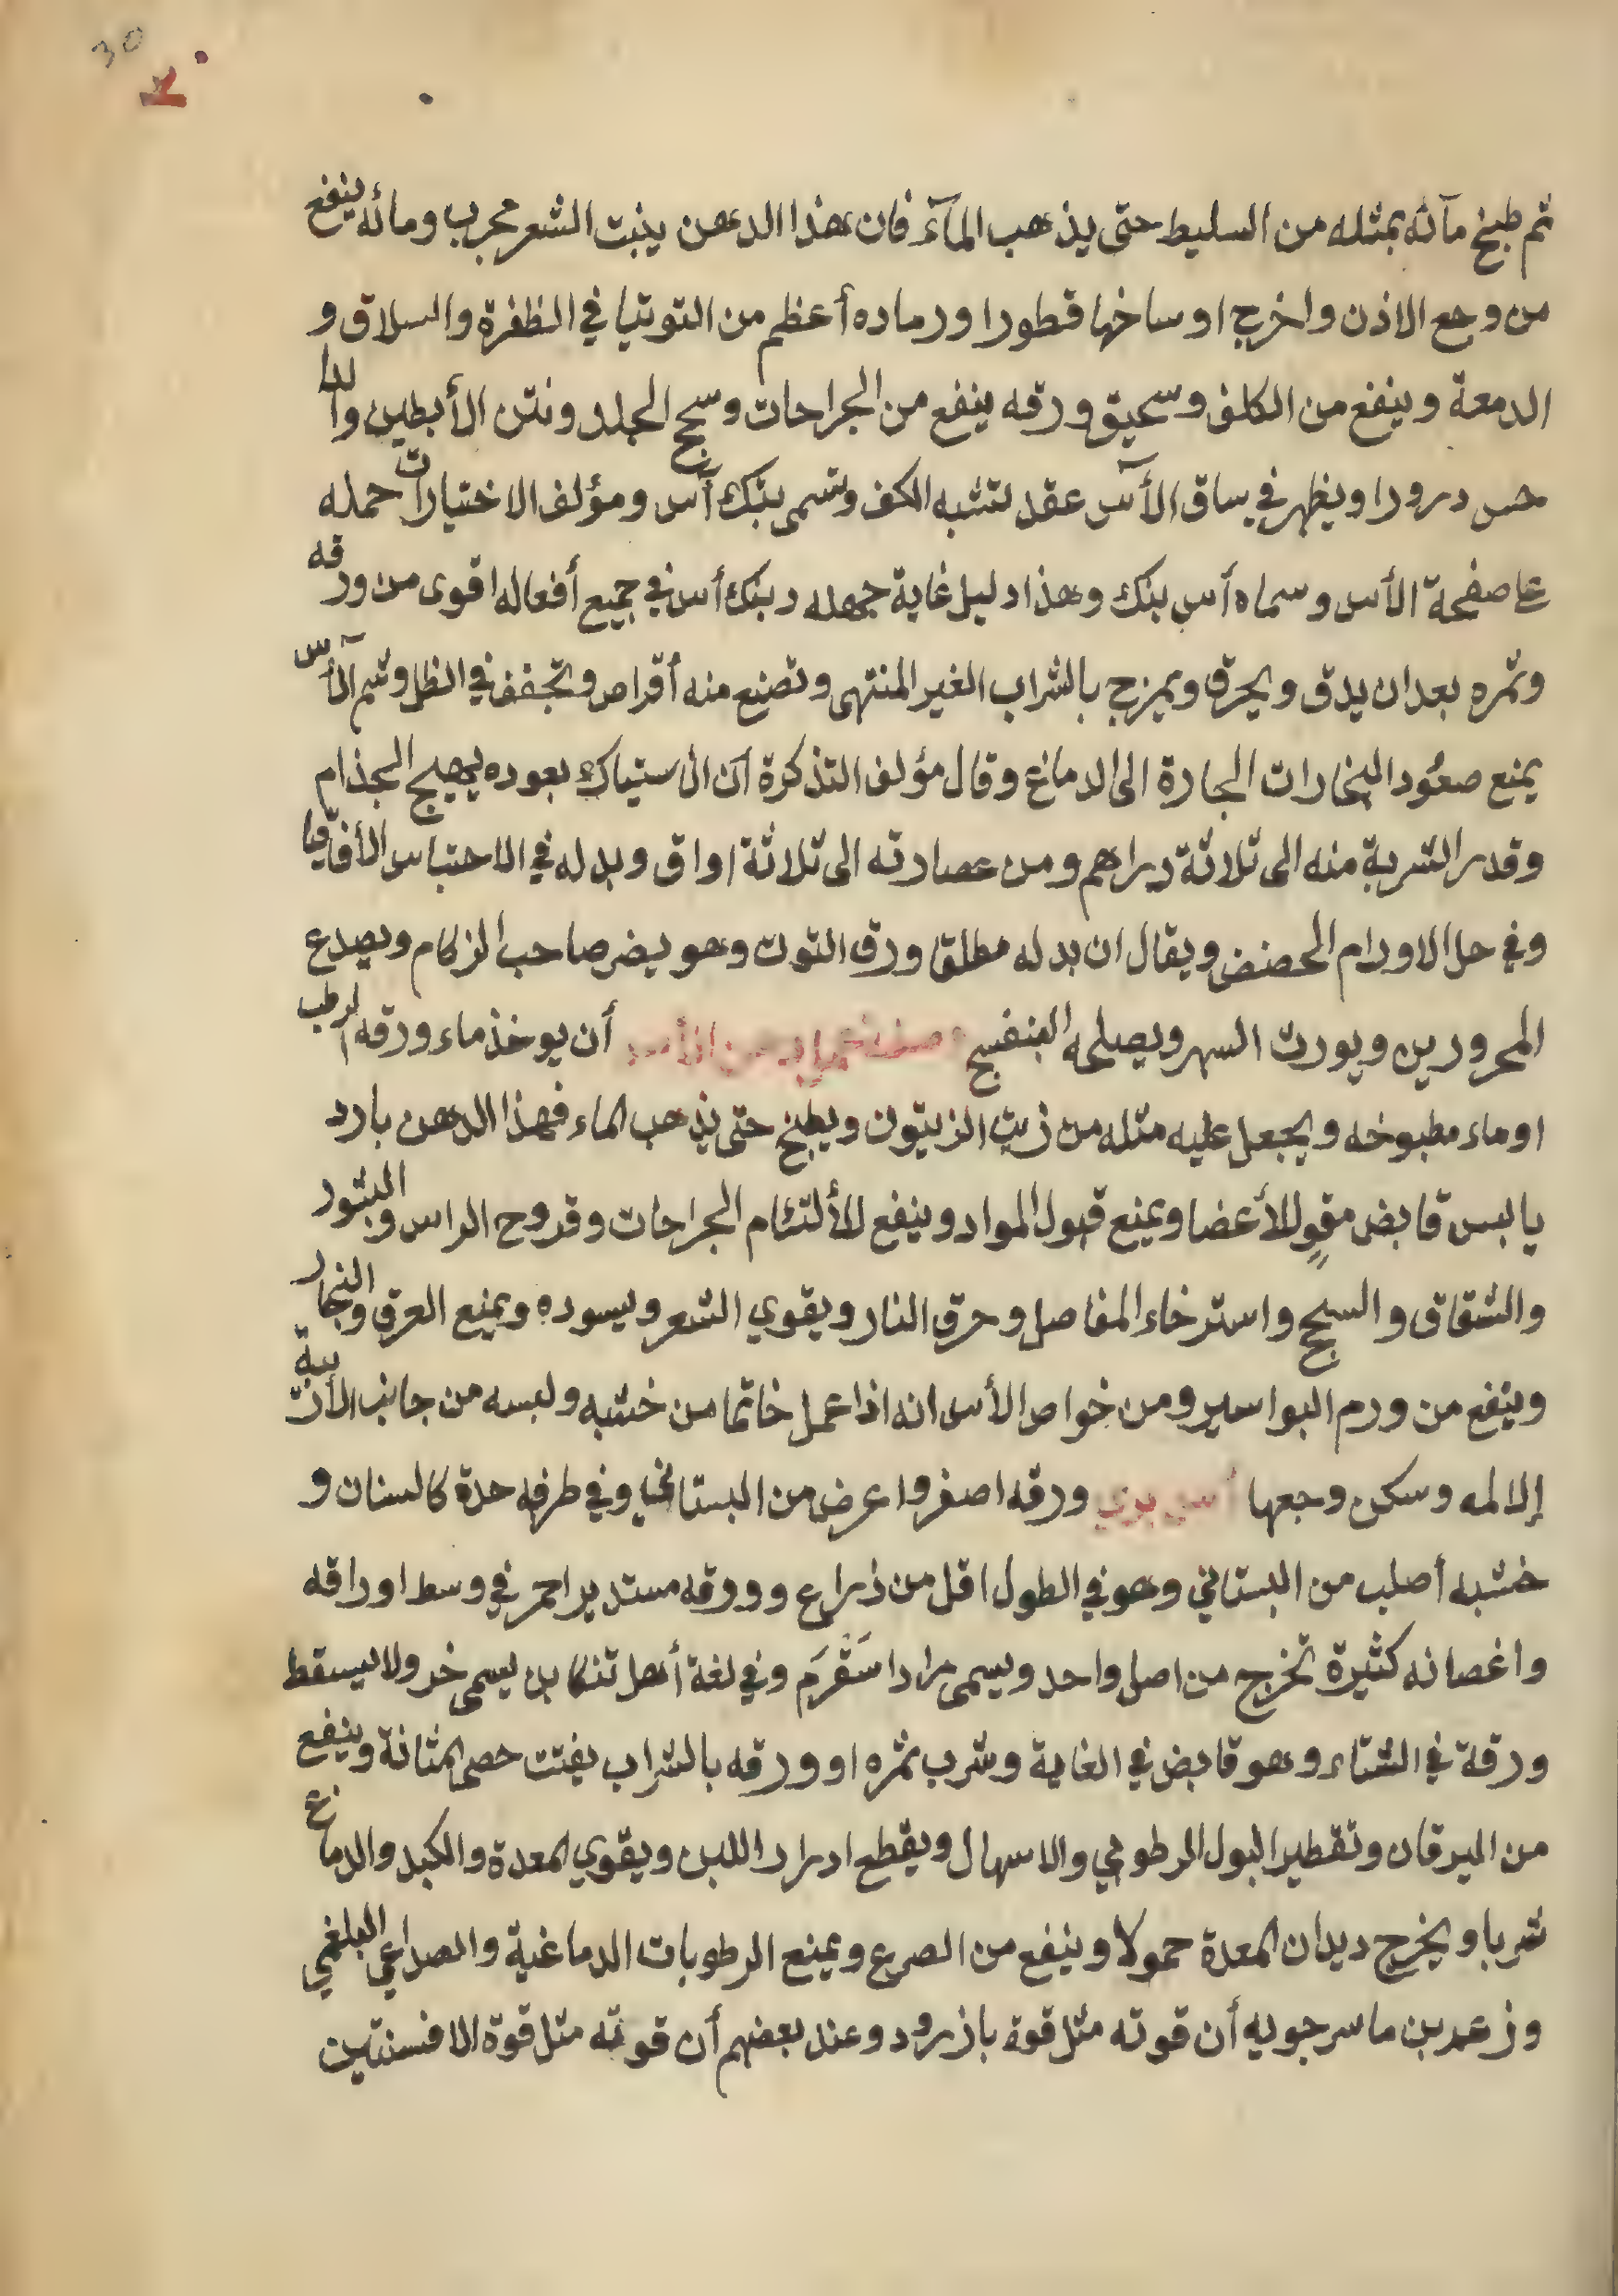 30
٣٠
ثم طبخ مآئه بمثله من السليط حتى يذهب المآء فان هذا الدهن ينبت الشعر مجرب ومائه ينفع
من وجع الاذن واخرج اوساخها قطورا ورماده أعظم من التوتيا في الظفرة والسلاق و
الدمعة وينفع من الكلف وسحيق ورقه ينفع من الجراحات وسحج الجلد ونتن الأبطين والدا
حس درورا ويظهر في ساق الآس عقد لتشبه الكف وتسمى بنك آس ومؤلف الاختيارات حمله
على صفحة الأس وسماه أس بنك وهذا دليل غاية جهله وبنك أس في جميع أفعاله اقوى من ورقه
وثمره بعد ان يدق ويحرق ويمزج بالشراب الغير المنتهى وتصنع منه أقراص وتجفف في الظل وشم الآس
يمنع صعُود البخارات الحارة الى الدماغ وقال مؤلف التذكرة ان الاستياك بعوده يهيج الجذام
وقدر الشربة منه الى ثلاثة دراهم ومن عصارته الى ثلاثة اواق وبدله في الاحتباس الأقاقيا
وفي حل الاورام الحضض ويقال ان بدله مطلقا ورق التوت وهو يضر صاحب الزكام ويصدع
المحرورين ويورث السهر ويصلحه البنفسج وصفة عمل دهن الأس أن يوخذ ماء ورقه الرطب
او ماء مطبوخه ويجعل عليه مثله من زيت الزيتون ويطبخ حتى يذهب الماء فهذا الدهن بارد
يابس قابض مقوٍ للأعضا ويمنع قبول المواد وينفع للألتئام الجراحات وقروح الراس والبثور
والشقاق والسحج واسترخاء المفاصل وحرق النار ويقوي الشعر ويسوده ويمنع العرق والنجار
وينفع من ورم البواسير ومن خواص الأس انه اذا عمل خاتما من خشبه ولبسه من جانب الأرنبية
إلالمه وسكن وجعها أس بري ورقه اصفر واعرض من البستاني وفي طرفه حدة كالسنان و
خشبه أصلب من البستاني وهو في الطول اقل من ذراع وورقه مستدير احمر في وسط اوراقه
واغصانه كثيرة تخرج من اصل واحد ويسمى مرادا سَقْرَم وفي لغة أهل تنكابن يسمى خر ولا يسقط
ورقة في الشتاء وهو قابض في الغاية وشرب ثمره او ورقه بالشراب يفتت حصى المثانة وينفع
من اليرقان وتقطير البول الرطوبي والاسهال ويقطع ادرار اللبن ويقوي المعدة والكبد والدماغ
شربا ويخرج ديدان المعدة حمولا وينفع من الصرع ويمنع الرطوبات الدماغية والصداعي البلغمي
وزعم بن ماسرجويه أن قوته مثل قوة باذرود وعند بعضهم أن قوته مثل قوة الافسنتين